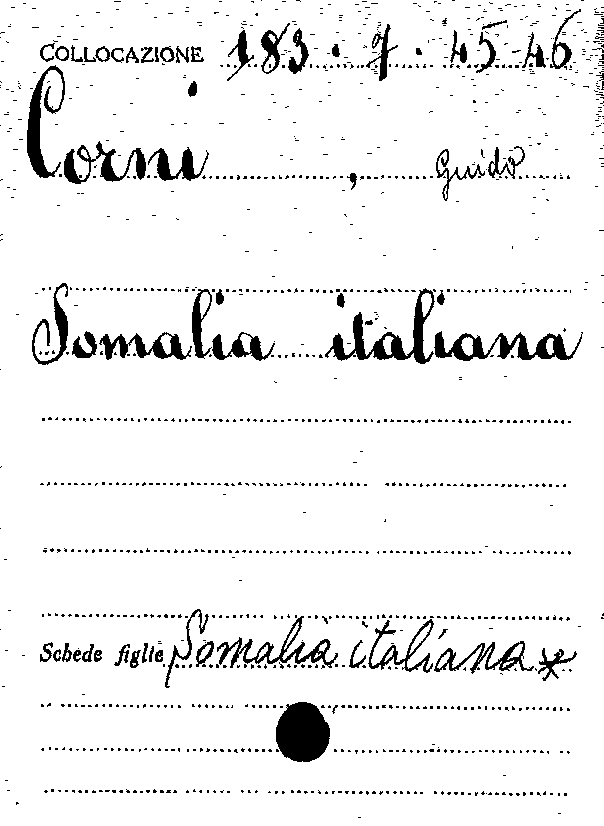 COLLOCAZIONE 183.7.45-46
Corni, Guido
Somalia italiana
Schede figlie Somalia italiana *